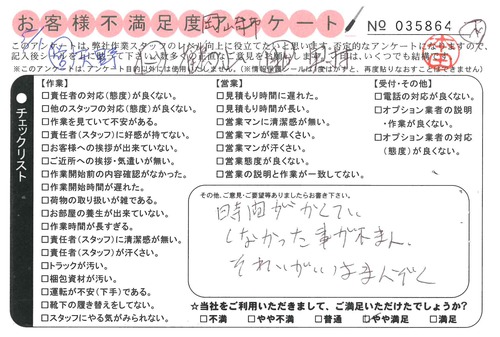 お客様不満足度アンケート
№ 035864
このアンケートは、弊社作業スタッフのレベル向上に役立てたいと思います。否定的なアンケートになりますので、
※このアンケートは、アンケート目的以外には使用いたしません。
チェックリスト
【作業】
□責任者の対応(態度)が良くない。
□他のスタッフの対応(態度)が良くない。
□作業を見ていて不安がある。
□責任者(スタッフ)に好感が持てない。
□お客様への挨拶が出来ていない。
□ご近所への挨拶・気遣いが無い。
□作業開始前の内容確認がなかった。
□作業開始時間が遅れた。
□荷物の取り扱いが雑である。
□お部屋の養生が出来ていない。
□作業時間が長すぎる。
□責任者(スタッフ)に清潔感が無い。
□責任者(スタッフ)が汗くさい。
□トラックが汚い。
□梱包資材が汚い。
□運転が不安(下手)である。
□靴下の履き替えをしてない。
□スタッフにやる気がみられない。
【営業】
□見積もり時間に遅れた。
□見積もり時間が長い。
□営業マンに清潔感が無い。
□営業マンが煙草くさい。
□営業マンが汗くさい。
□営業態度が良くない。
□営業の説明と作業が一致してない。
【受付・その他】
□電話の対応が良くない。
□オプション業者の説明
・作業が良くない。
□オプション業者の対応
(態度)が良くない。
その他、ご意見・ご要望等ありましたらお書き下さい。
時間がかくてい
しなかった事が不まん、
それいがいはまんぞく
☆当社をご利用いただきまして、ご満足いただけたでしょうか?
□不満 □やや不満 □普通 □やや満足 □満足